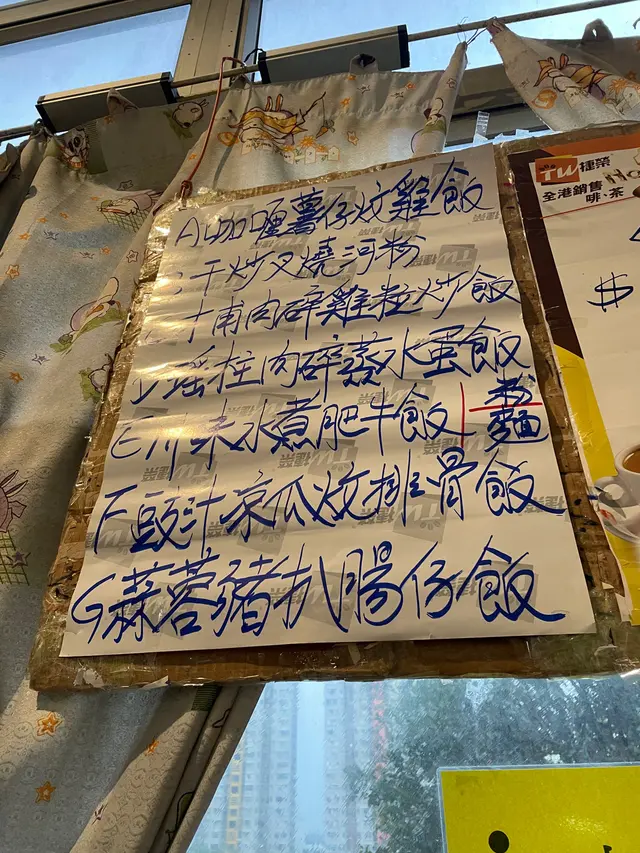 A 咖喱薯仔炆雞飯
干炒叉燒河粉
甫肉碎雞粒炒飯
D 瑤柱肉碎蒸水蛋飯
E 川味水煮肥牛飯 粉 麵
F 豉汁凉瓜炆排骨飯
G 蒜蓉豬扒腸仔飯
TW 捷榮
全港銷售
啡.茶
$